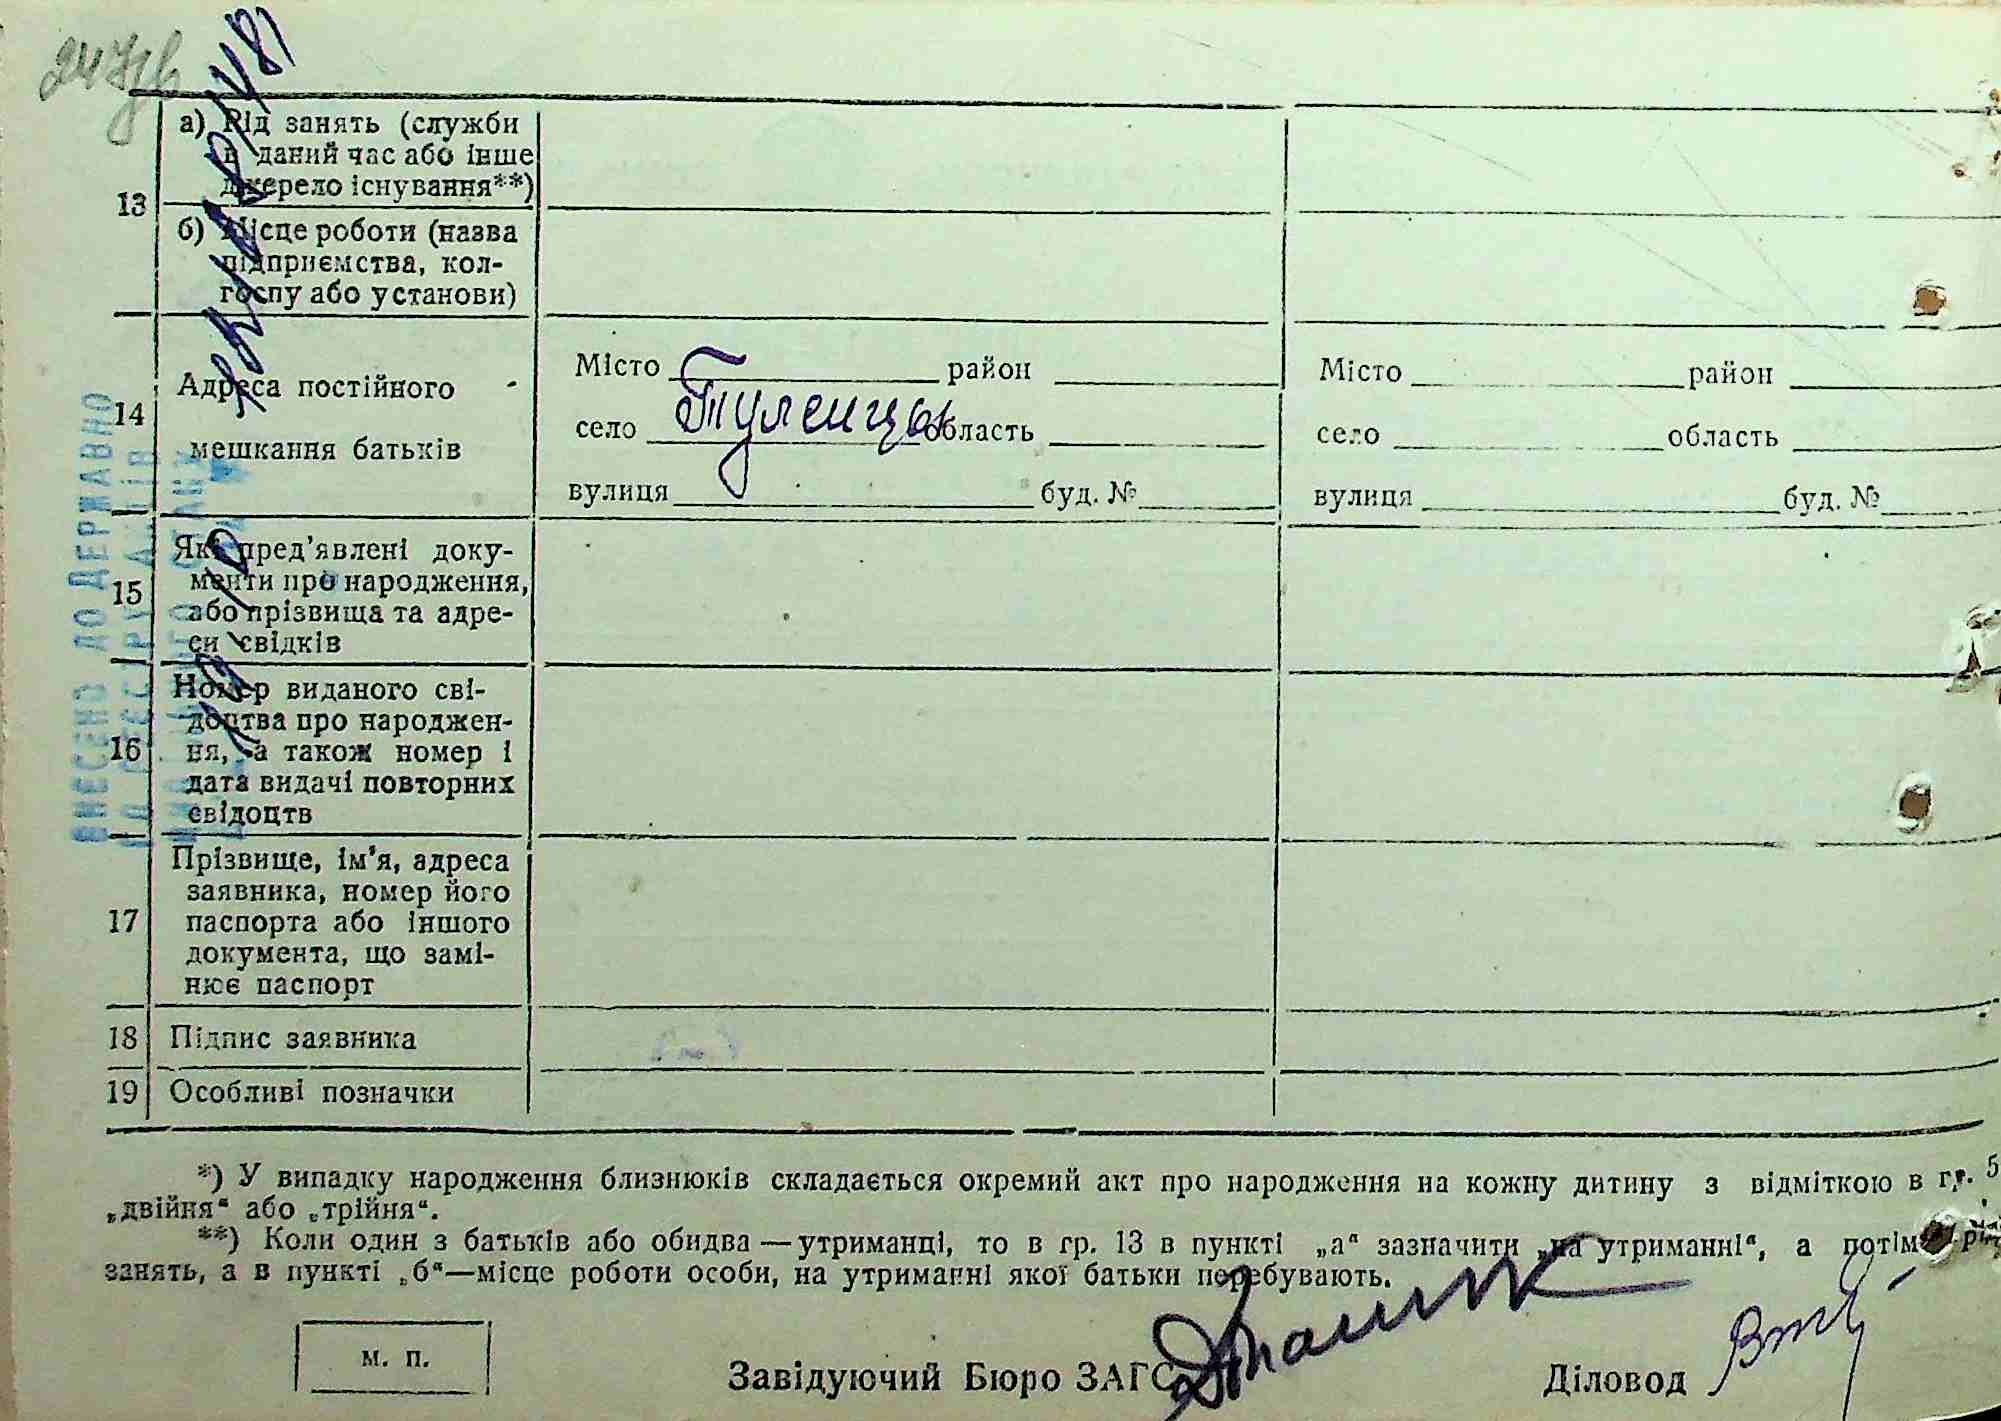 а) Рід занять (служби
в даний час або інше
джерело існування**)
13
б) Місце роботи (назва
підприємства, кол-
госпу або установи)
14
Адреса постійного
мешкання батьків
Місто район
село Туленцы область
вулиця буд. №
Місто район
село область
вулиця буд. №
15
Які пред’явлені доку-
менти про народження,
або прізвища та адре-
си свідків
16
Номер виданого сві-
доцтва про народжен-
ня, а також номер і
дата видачі повторних
свідоцтв
17
Прізвище, ім’я, адреса
заявника, номер його
паспорта або іншого
документа, що замі-
нює паспорт
18 Підпис заявника
19 Особливі позначки
ВНЕСЕНО ДО ДЕРЖАВНО
*) У випадку народження близнюків складається окремий акт про народження на кожну дитину з відміткою в гр. 5
„двійня“ або „трійня“.
**) Коли один з батьків або обидва — утриманці, то в гр. 13 в пункті „а“ зазначити „на утриманні“, а потім рід
занять, а в пункті „б“—місце роботи особи, на утриманні якої батьки перебувають.
м. п.
Завідуючий Бюро ЗАГС
Діловод